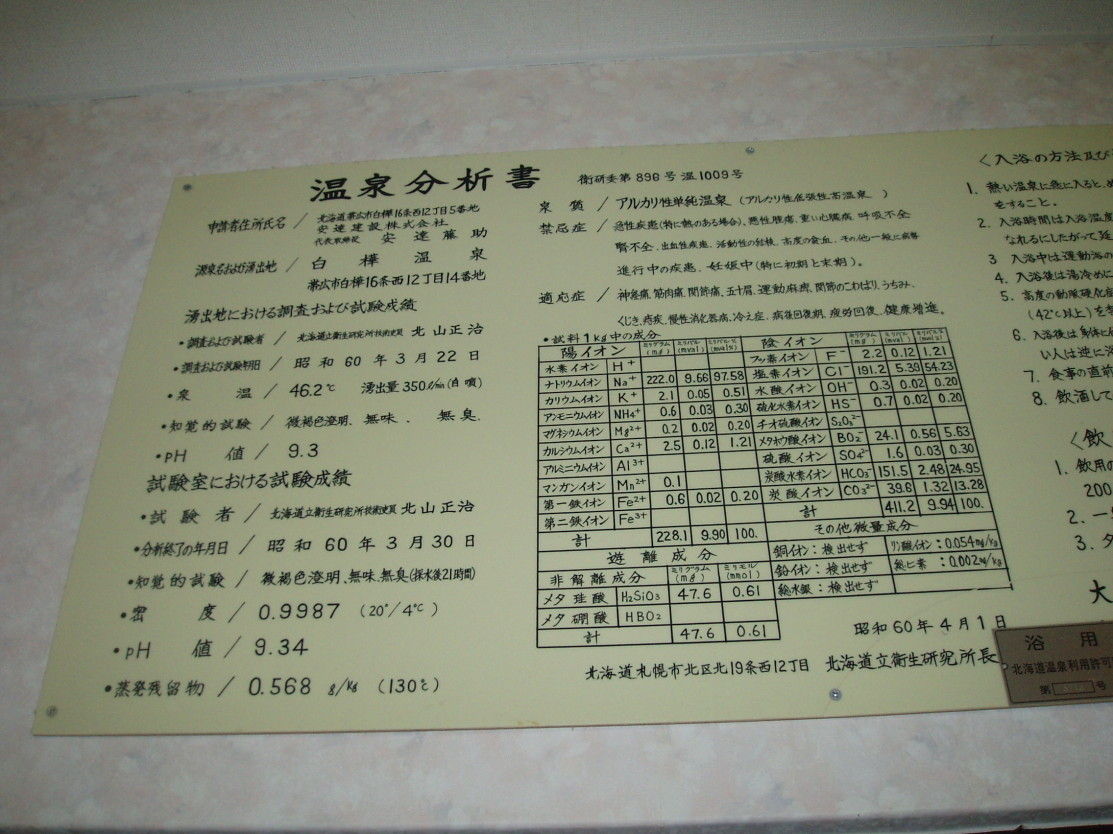 温泉分析書 衛研委第896号 温1009号
申請者住所氏名 / 北海道帯広市白樺16条西12丁目5番地
安達建設株式会社
代表取締役 安達藤助
源泉名および湧出地 / 白樺温泉
帯広市白樺16条西12丁目14番地
湧出地における調査および試験成績
・調査および試験者 / 北海道立衛生研究所技術吏員 北山正治
・調査および試験期日 / 昭和60年3月22日
・泉温 / 46.2℃ 湧出量 350ℓ/min(自噴)
・知覚的試験 / 微褐色澄明、無味、無臭.
・pH値 / 9.3
試験室における試験成績
・試験者 / 北海道立衛生研究所技術吏員 北山正治
・分析終了の年月日 / 昭和60年3月30日
・知覚的試験 / 微褐色澄明、無味、無臭(採水後21時間)
・密度 / 0.9987 (20°/4℃)
・pH値 / 9.34
・蒸発残留物 / 0.568 g/kg (130℃)
泉質 / アルカリ性単純温泉 (アルカリ性低張性高温泉)
禁忌症 / 急性疾患(特に熱のある場合)、悪性腫瘍、重い心臓病、呼吸不全
腎不全、出血性疾患、活動性の結核、高度の貧血、その他一般に病勢
進行中の疾患、妊娠中(特に初期と末期)。
適応症 / 神経痛、筋肉痛、関節痛、五十肩、運動麻痺、関節のこわばり、うちみ、
くじき、痔疾、慢性消化器病、冷え症、病後回復期、疲労回復、健康増進。
・試料1kg中の成分
陽イオン ミリグラム(mg) ミリバル(mval) ミリバル%(mval%)
水素イオン H⁺
ナトリウムイオン Na⁺ 222.0 9.66 97.58
カリウムイオン K⁺ 2.1 0.05 0.51
アンモニウムイオン NH₄⁺ 0.6 0.03 0.30
マグネシウムイオン Mg²⁺ 0.2 0.02 0.20
カルシウムイオン Ca²⁺ 2.5 0.12 1.21
アルミニウムイオン Al³⁺
マンガンイオン Mn²⁺ 0.1
第一鉄イオン Fe²⁺ 0.6 0.02 0.20
第二鉄イオン Fe³⁺
計 228.1 9.90 100.
陰イオン ミリグラム(mg) ミリバル(mval) ミリバル%(mval%)
フッ素イオン F⁻ 2.2 0.12 1.21
塩素イオン Cl⁻ 191.2 5.39 54.23
水酸イオン OH⁻ 0.3 0.02 0.20
硫化水素イオン HS⁻ 0.7 0.02 0.20
チオ硫酸イオン S₂O₃²⁻
メタホウ酸イオン BO₂⁻ 24.1 0.56 5.63
硫酸イオン SO₄²⁻ 1.6 0.03 0.30
炭酸水素イオン HCO₃⁻ 151.5 2.48 24.95
炭酸イオン CO₃²⁻ 39.6 1.32 13.28
計 411.2 9.94 100.
遊離成分
非解離成分 ミリグラム(mg) ミリモル(mmol)
メタ珪酸 H₂SiO₃ 47.6 0.61
メタ硼酸 HBO₂
計 47.6 0.61
その他微量成分
銅イオン:検出せず リン酸イオン:0.054mg/kg
鉛イオン:検出せず 総ヒ素:0.002mg/kg
総水銀:検出せず
昭和60年4月1日
北海道札幌市北区北19条西12丁目 北海道立衛生研究所長
<入浴の方法及び
1. 熱い温泉に急に入ると、め
をすること。
2. 入浴時間は入浴温度
なれるにしたがって延
3 入浴中は運動浴の
4. 入浴後は湯冷めに
5. 高度の動脈硬化症
(42℃以上)を
6. 入浴後は身体に
い人は逆に浴
7. 食事の直前
8. 飲酒して
<飲
1. 飲用の
200
2. 一
3. 夕
大
浴用
北海道温泉利用許可
第 号